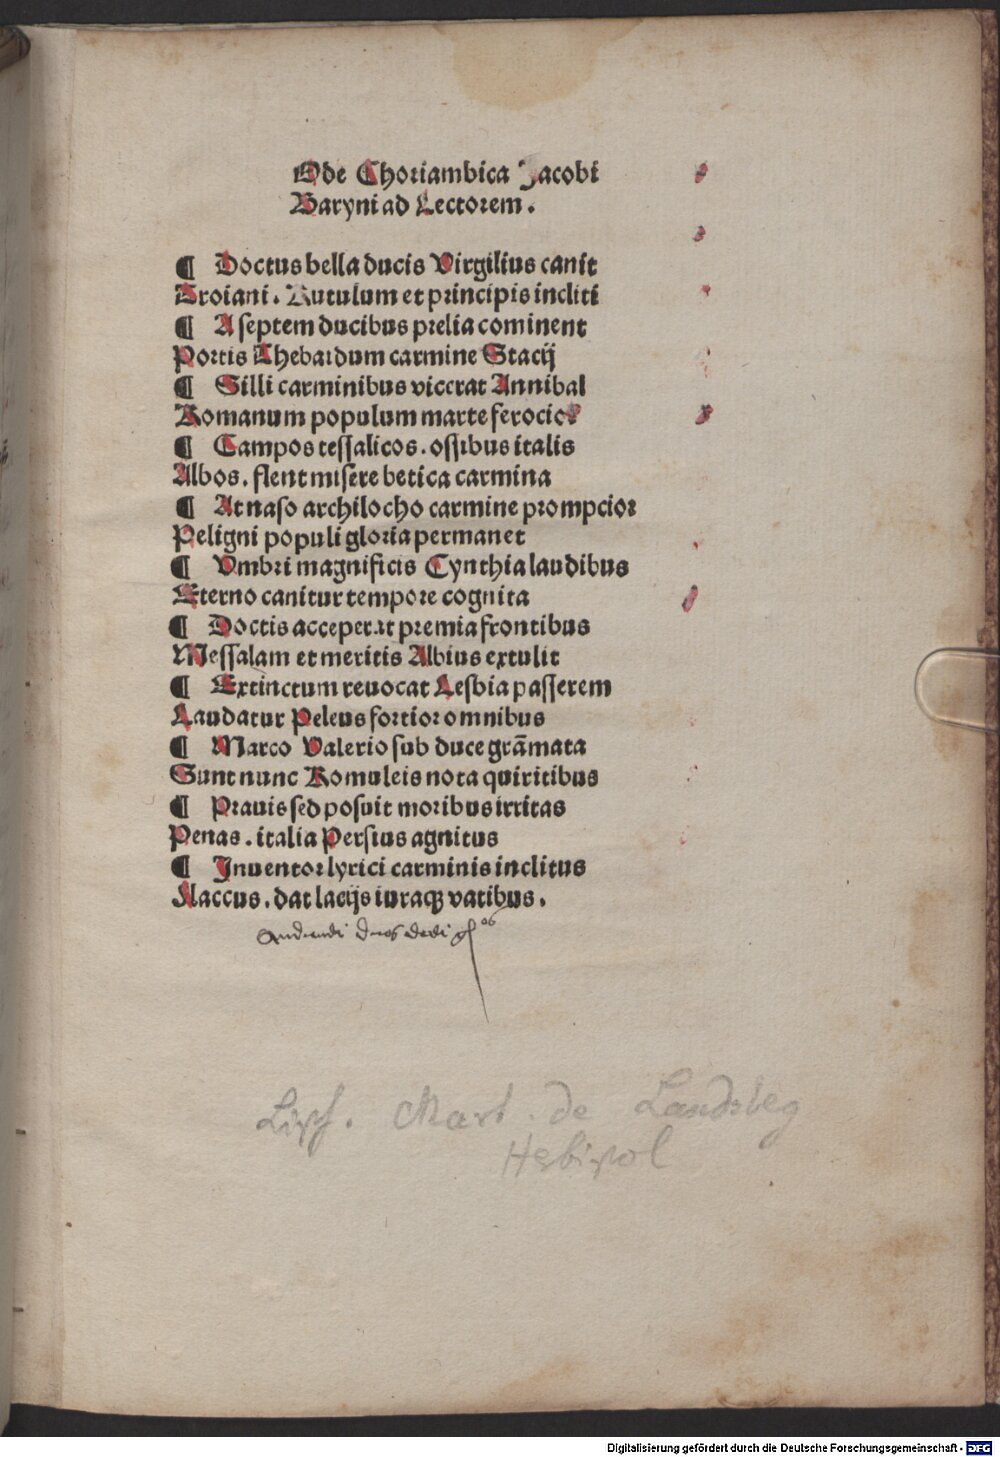 Ode Choriambica Jacobi
Baryni ad Lectorem.
¶ Doctus bella ducis Virgilius canit
Troiani. Rutulum et principis incliti
¶ A septem ducibus prelia cominent
Portis Thebaidum carmine Stacij
¶ Silli carminibus vicerat Annibal
Romanum populum marte ferocior
¶ Campos tessalicos. ossibus italis
Albos. flent misere betica carmina
¶ At naso archilocho carmine prompcior
Peligni populi gloria permanet
¶ Vmbri magnificis Cynthia laudibus
Eterno canitur tempore cognita
¶ Doctis acceperat premia frontibus
Messalam et meritis Albius extulit
¶ Extinctum reuocat Lesbia passerem
Laudatur Peleus fortior omnibus
¶ Marco Valerio sub duce grãmata
Sunt nunc Romuleis nota quiritibus
¶ Prauis sed posuit moribus irritas
Penas. italia Persius agnitus
¶ Inuentor lyrici carminis inclitus
Flaccus. dat lacijs iuraqȝ vatibus.
Lipf. Mart. de Landsbeg
Herbipol
Digitalisierung gefördert durch die Deutsche Forschungsgemeinschaft - DFG